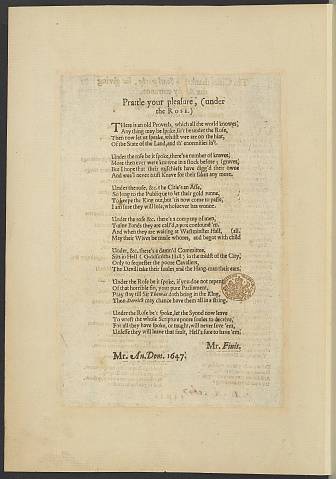 Prattle your pleasure, (under
the Rose.)
THere is an old Proverb, which all the world knowes,
Any thing may be spoke, if't be under the Rose,
Then now let us speake, whilst wee are on the hint,
Of the State of the Land, and th' enormities in't.
Under the rose be it spoke, there's a number of knaves,
More then ever were knowne in a State before; (graves,
But I hope that their mischiefs have digg'd their owne
And wee'l never trust Knave for their sakes any more.
Under the rose, &c. the Citie's an Asse,
So long to the Publique to let their gold runne,
To keepe the King out, but 'tis now come to passe,
I am sure they will lose, whosoever has wonne.
Under the rose &c. there's a company of men,
Traine Bands they are call'd, a pox confound 'em,
And when they are waiting at Westminster Hall, (all.
May their Wives be made whores, and begot with child
Under, &c. there's a damn'd Committee,
Sits in Hell (Goldsmiths Hall) in the midst of the City,
Only to sequester the poore Cavaliers,
The Devill take their soules and the Hang-man their eares.
Under the Rose be it spoke, if you doe not repent
Of that horrible sin, your pure Parliament,
Pray stay till Sir Thomas doth bring in the King,
Then Derrick may chance have them all in a string.
Under the Rose be't spoke, let the Synod now leave
To wrest the whole Scripture poore soules to deceive,
For all they have spoke, or taught, will never save 'em,
Unlesse they will leave that fault, Hell's sure to have 'em.
Mr. Finis.
Mr. An. Dom. 1647.